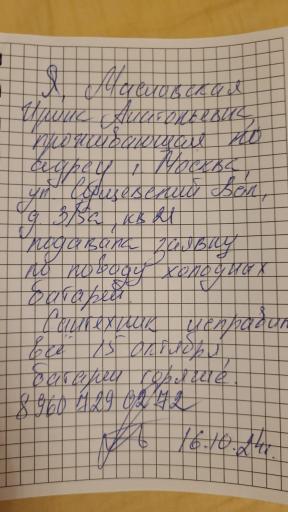 Я, Масловская
Ирина Анатольевна,
проживающая по
адресу г. Москва,
ул Сущевский Вал,
д 3/5а, кв 21
подавала заявку
по поводу холодных
батарей.
Сантехник исправил
всё 15 октября,
батареи горячие.
8 960 729 02 72
16.10.24г.